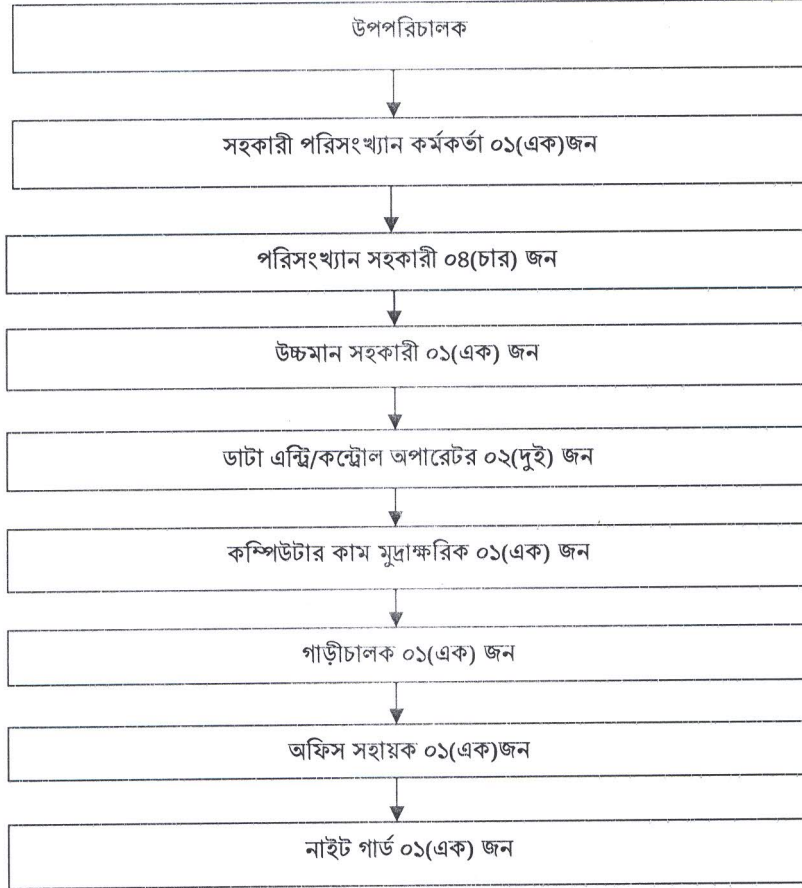 উপপরিচালক
সহকারী পরিসংখ্যান কর্মকর্তা ০১(এক)জন
পরিসংখ্যান সহকারী ০৪(চার) জন
উচ্চমান সহকারী ০১(এক) জন
ডাটা এন্ট্রি/কন্ট্রোল অপারেটর ০২(দুই) জন
কম্পিউটার কাম মুদ্রাক্ষরিক ০১(এক) জন
গাড়ীচালক ০১(এক) জন
অফিস সহায়ক ০১(এক)জন
নাইট গার্ড ০১(এক) জন